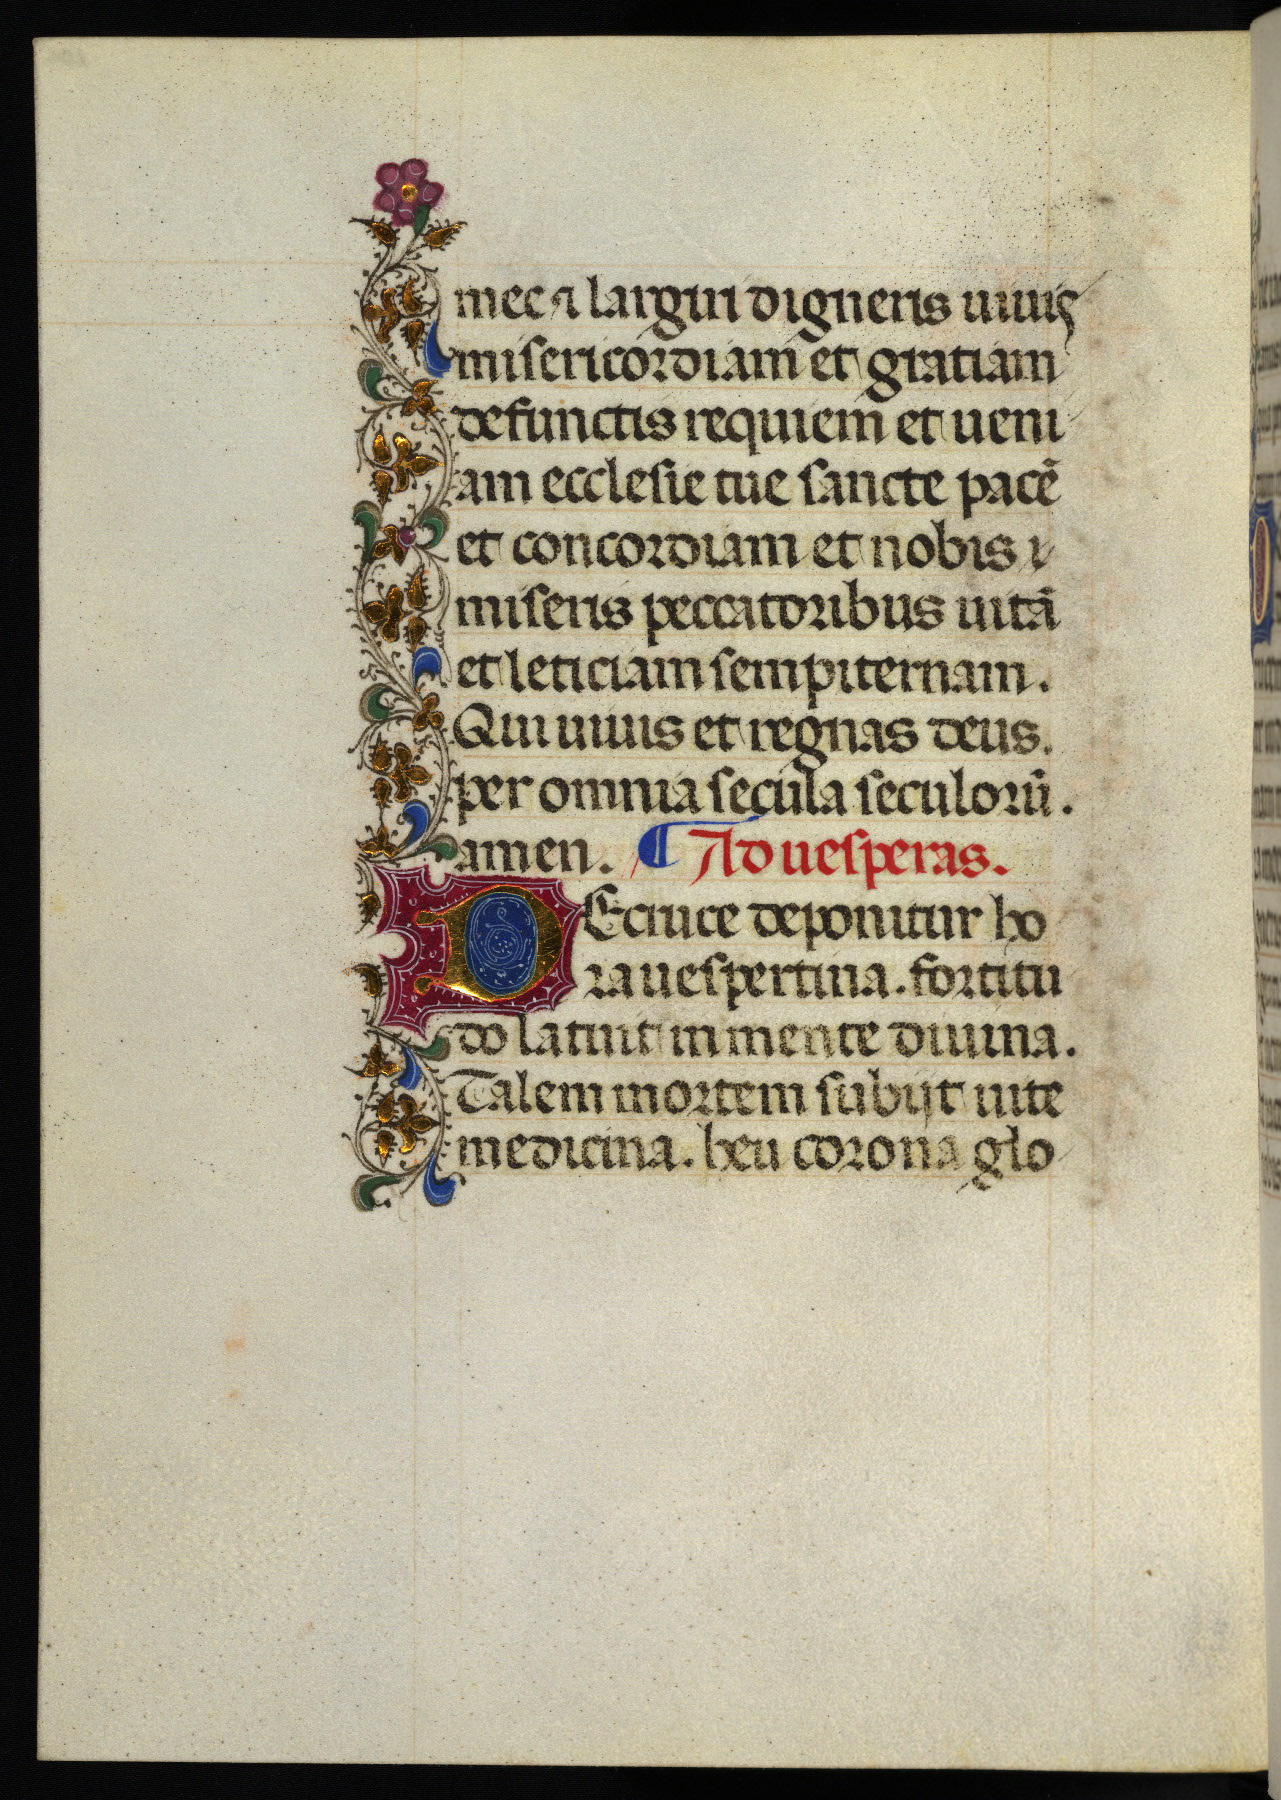 mee ⁊ largiri digneris uiuis
misericordiam et gratiam
defunctis requiem et ueni
am ecclesie tue sancte pacē
et concordiam et nobis
miseris peccatoribus uitā
et leticiam sempiternam.
Qui uiuis et regnas deus.
per omnia secula seculorū.
amen. ¶ Ad uesperas.
DE cruce deponitur ho
ra uespertina. fortitu
do latuit in mente diuina.
Talem mortem subijt uite
medicina. heu corona glo